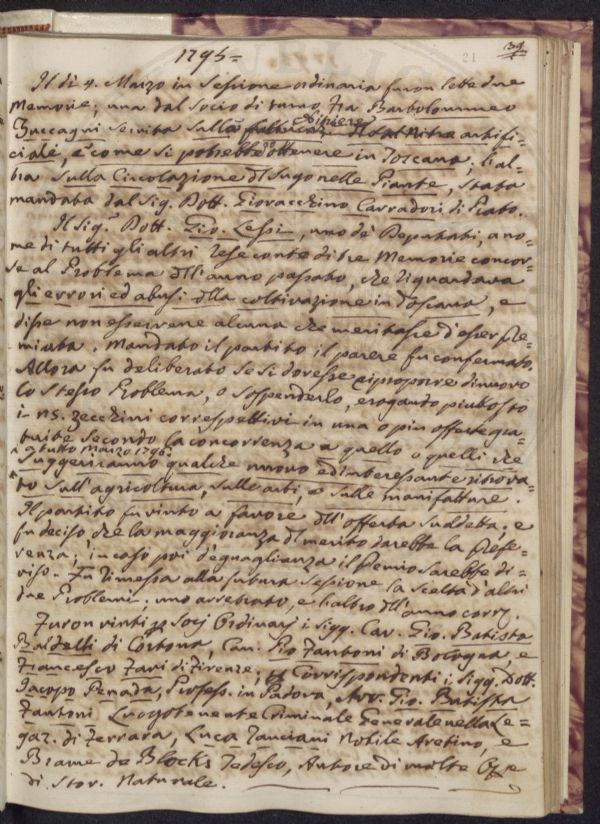 1795 =
21
39
Il dì 4. Marzo in Sessione ordinaria furon lette due
Memorie; una dal Socio di turno, Fra Bartolommeo
Zuccagni scritta sulla Nitro artifi-
ciale, e come si potrebbe ottenere in Toscana; l'al-
tra Sulla Circolazione dl Sugo nelle Piante, stata
mandata dal Sig. Dott. Giovacchino Carradori di Prato.
Il Sig.r Dott. Gio. Lessi, uno de' Deputati, a no-
me di tutti gli altri rese conto di tre Memorie concor-
se al Problema dll'anno passato, che riguardava
gli errori ed abusi dlla coltivazione in Toscana, e
disse non esservene alcuna che meritasse d'esser pre-
miata. Mandato il partito, il parere fu confermato.
Allora fu deliberato se si dovesse riproporre di nuovo
lo stesso Problema, o sospenderlo, erogando piuttosto
i zecchini correspettivi in una o più offerte gra-
tuite secondo la concorrenza a quello o quelli che
a tutto Marzo 1796.
suggeriranno qualche nuovo ed interessante ritrova-
to sull'agricoltura, sulle arti, e sulle manifatture.
Il partito fu vinto a favore dll'offerta suddetta; e
fu deciso che la maggioranza dl merito darebbe la prefe-
renza; in caso poi d'eguaglianza il Premio sarebbe di-
viso. Fu rimessa alla futura Sessione la scelta d'altri
due Problemi, uno arretrato, e l'altro dll'anno corr.
Furon vinti Socj Ordinarj i Sigg. Cav. Gio. Batista
Baldelli di Cortona, Can. Pio Fantoni di Bologna, e
Francesco Favi di Firenze; Corrispondenti i Sigg. Dott.
Jacopo Penada, Profess. in Padova, Avv. Gio. Batista
Fantoni Luogotenente Criminale Generale nella Le-
gaz. di Ferrara, Luca Nobile Aretino, e
Brame de Blocks Tedesco, Autore di molte Ope
di Stor. Naturale.